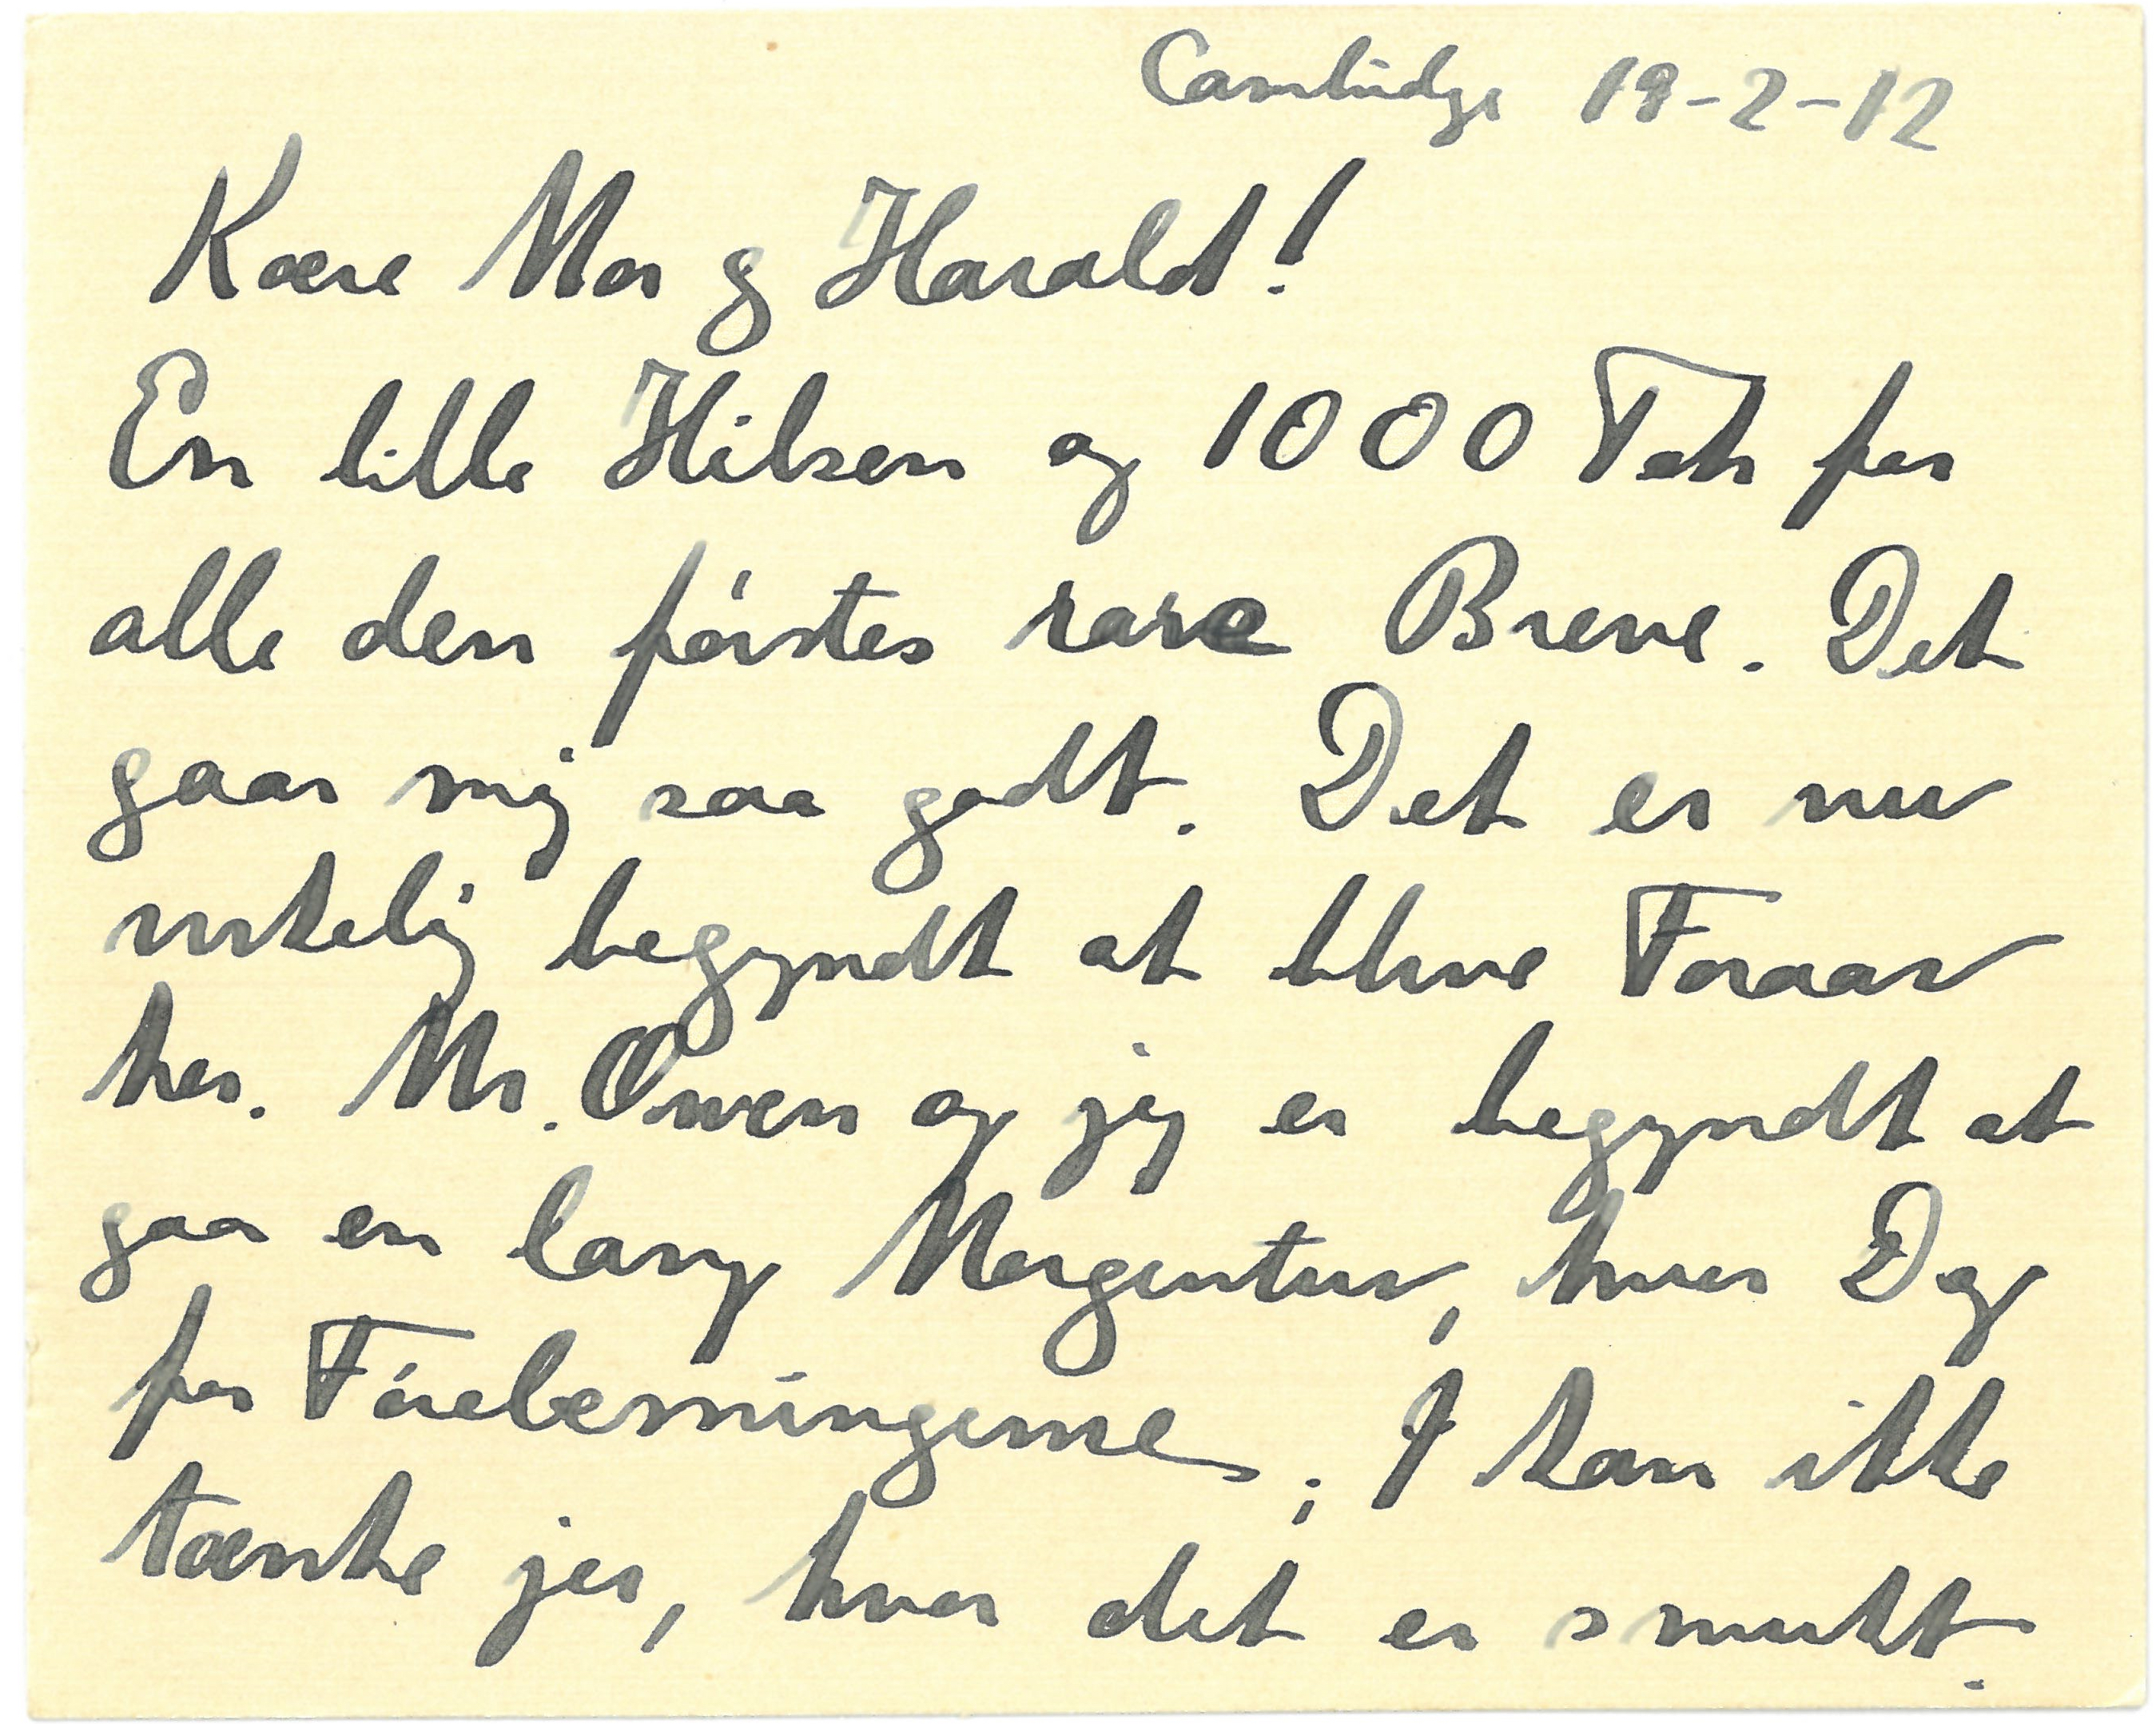 Cambridge 19-2-12
Kære Mor og Harald!
En lille Hilsen og 1000 Tak for
alle den førstes rare Breve. Det
gaar mig saa godt. Det er nu
virkelig begyndt at blive Foraar
her. Mr. Owen og jeg er begyndt at
gaa en lang Morgentur, hver Dag
før Forelæsningerne; I kan ikke
tænke jer, hvor det er smukt.